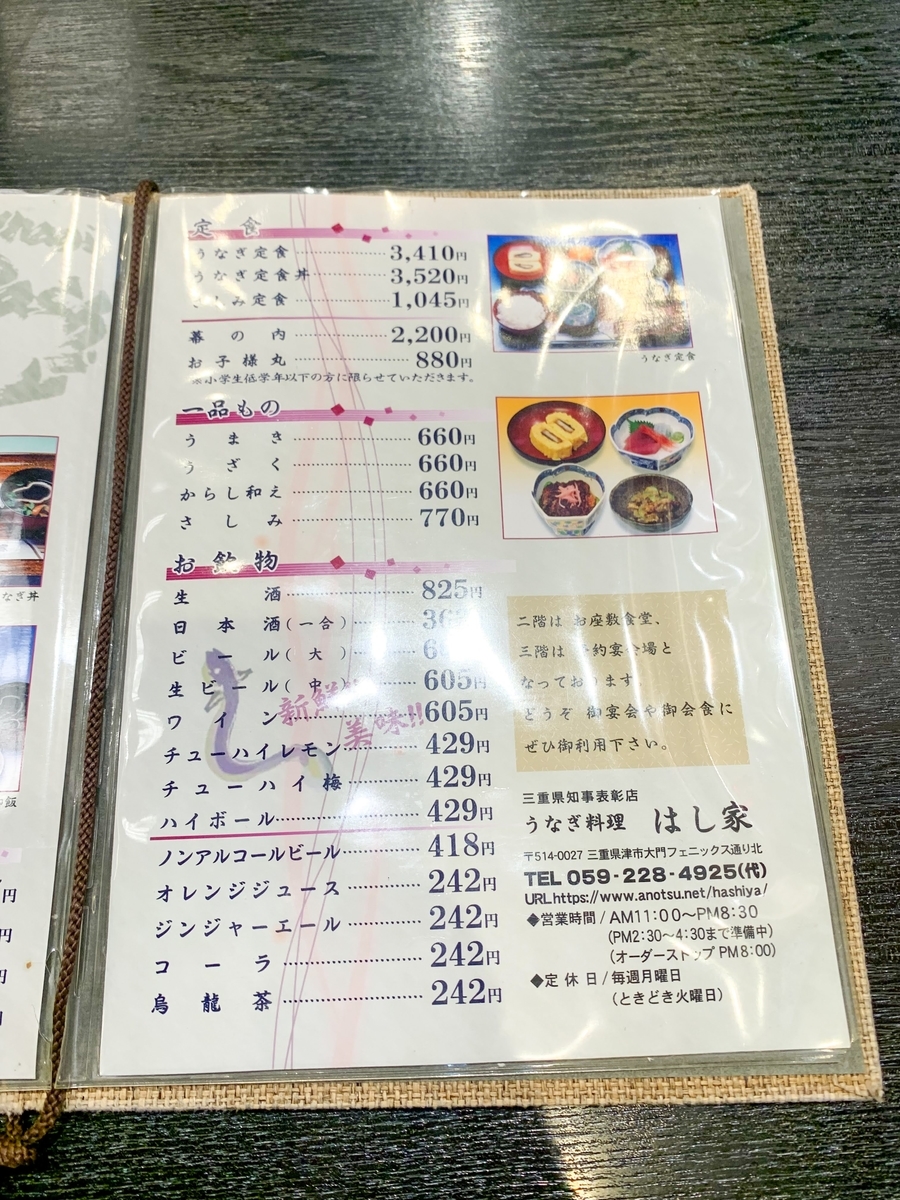 定食
うなぎ定食 3,410円
うなぎ定食丼 3,520円
さしみ定食 1,045円
幕の内 2,200円
お子様丸 880円
※小学生低学年以下の方に限らせていただきます。
うなぎ定食
一品もの
うまき 660円
うざく 660円
からし和え 660円
さしみ 770円
お飲物
生酒 825円
日本酒(一合)
ビール(大)
生ビール(中) 605円
ワイン 605円
チューハイレモン 429円
チューハイ梅 429円
ハイボール 429円
ノンアルコールビール 418円
オレンジジュース 242円
ジンジャーエール 242円
コーラ 242円
烏龍茶 242円
新鮮
美味!!
二階は お座敷食堂、
三階は 予約宴会場と
なっております
どうぞ 御宴会や御会食に
ぜひ御利用下さい。
三重県知事表彰店
うなぎ料理 はし家
〒514-0027 三重県津市大門フェニックス通り北
TEL 059-228-4925(代)
URL https://www.anotsu.net/hashiya/
◆営業時間/AM11:00〜PM8:30
(PM2:30〜4:30まで準備中)
(オーダーストップ PM8:00)
◆定休日/毎週月曜日
(ときどき火曜日)
なぎ丼
飯
円
円
円